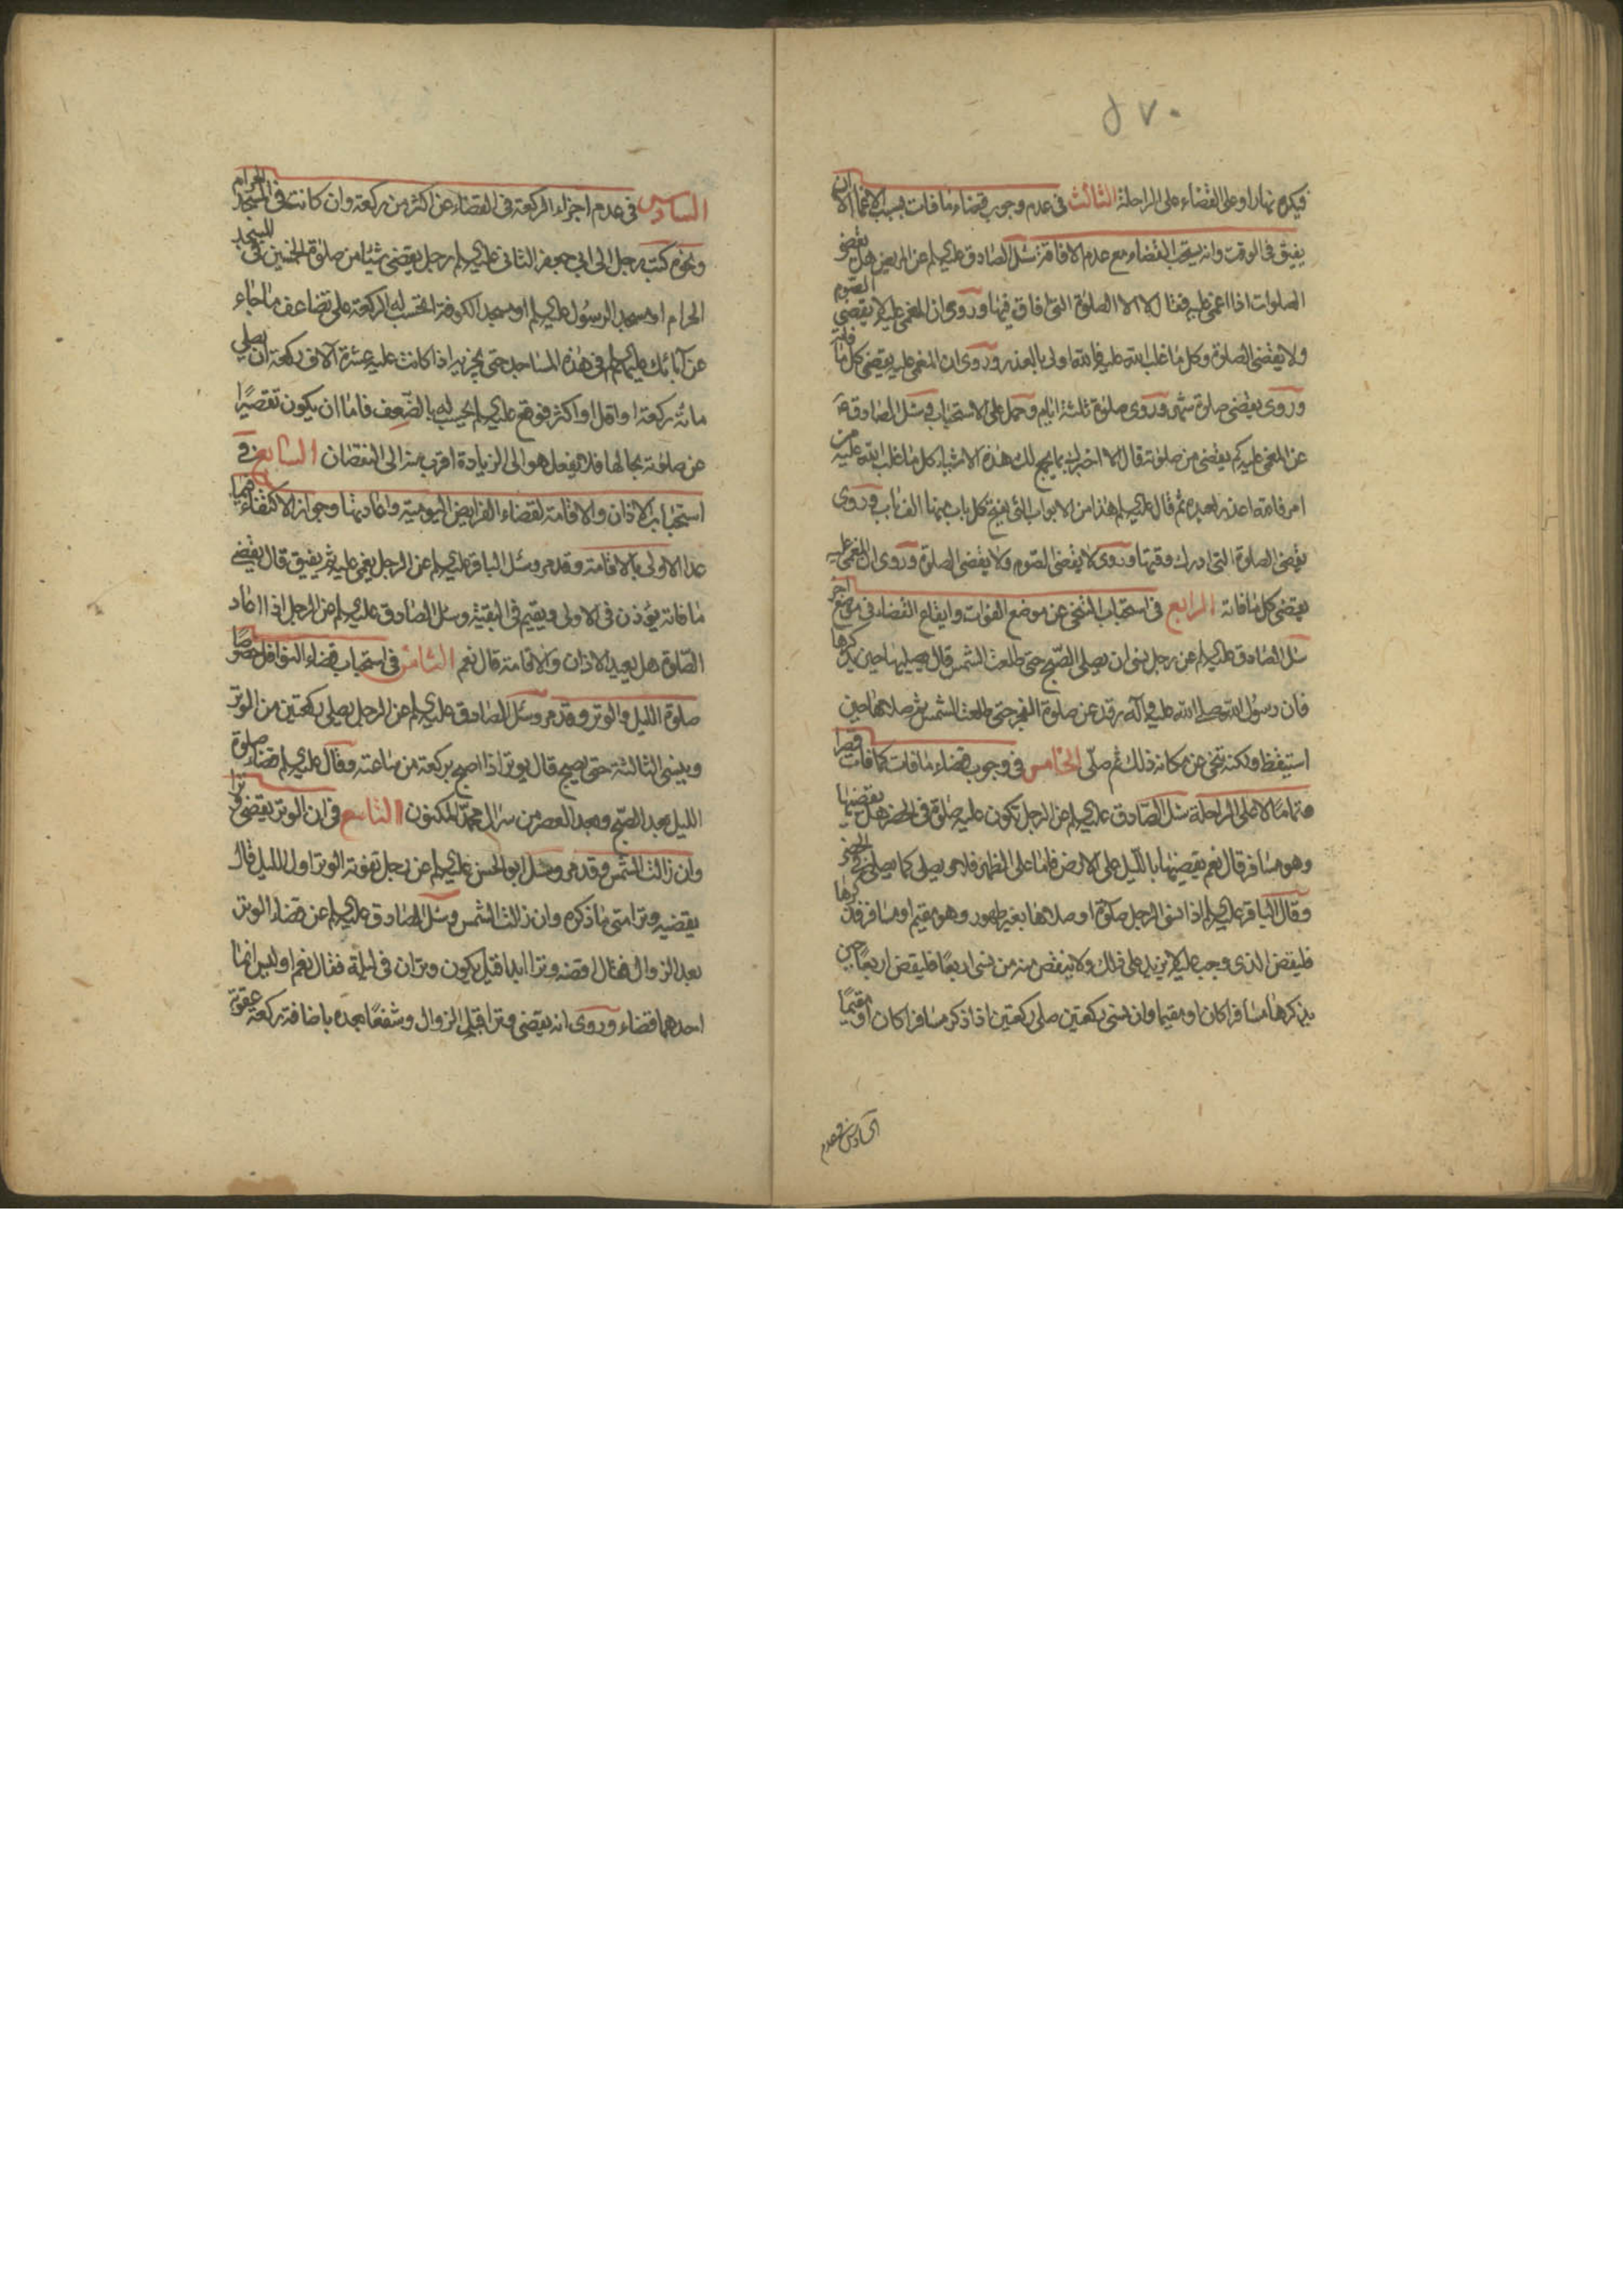 ٥٧٠
فيكره نهارا وعلى القضاء على الراحلة الثالث في عدم وجوب قضاء ما فات بسبب الاغماء الا ان
يفيق في الوقت وانه يستحب القضاء مع عدم الافاقة سئل الصادق عليه السلم عن المريض هل يقضي
الصلوات اذا اغمى عليه فقال لا الا الصلوة التي افاق فيها وروى ان المغمى عليه لا يقضي الصوم
ولا يقضى الصلوة وكل ما غلب الله عليه فالله اولى بالعذر وروى ان المغمى عليه يقضى كل ما فاته
وروى يقضى صلوة شهر وروى صلوة ثلثة ايام وحمل على الاستحباب وسئل الصادق ع
عن المغمى عليه كم يقضى من صلوته قال الا اخبرك بما يجمع لك هذه الاشياء كل ما غلب الله عليه من
امر فالله اعذر لعبده ثم قال عليه السلم هذا من الابواب التي يفتح كل باب منها الف باب وروى
يقضى الصلوة التي ادرك وقتها وروى لا يقضى الصوم ولا يقضى الصلوة وروى ان المغمى عليه
يقضى كل ما فاته الرابع في استحباب التنحى عن موضع الفوات وايقاع القضاء في موضع اخر
سئل الصادق عليه السلم عن رجل نسى ان يصلى الصبح حتى طلعت الشمس قال يصليها حين يذكرها
فان رسول الله صلى الله عليه وآله رقد عن صلوة الفجر حتى طلعت الشمس ثم صلاها حين
استيقظ ولكنه تنحى عن مكانه ذلك ثم صلى الخامس في وجوب قضاء ما فات كما فات قصرا
وتماما لا على الراحلة سئل الصادق عليه السلم عن الرجل تكون عليه صلوة في الحضر هل يقضيها
وهو مسافر قال نعم يقضيها بالليل على الارض فاما على الظهر فلا ويصلى كما يصلى في الحضر
وقال الباقر عليه السلم اذا نسى الرجل صلوة او صلاها بغير طهور وهو مقيم او مسافر فذكرها
فليقض الذي وجب عليه لا يزيد على ذلك ولا ينقص منه من نسى اربعا فليقض اربعا حين
يذكرها مسافرا كان او مقيما وان نسى ركعتين صلى ركعتين اذا ذكر مسافرا كان او مقيما
السادس في عدم
السادس في عدم اجزاء الركعة في القضاء عن اكثر من ركعة وان كانت في المسجد الحرام
ونحوه كتب رجل الى ابي جعفر الثاني عليه السلم رجل يقضى شيئا من صلوة الخمسين في المسجد
الحرام او مسجد الرسول عليه السلم او مسجد الكوفة اتحسب له الركعة على تضاعف ما جاء
عن آبائك عليهم السلم في هذه المساجد حتى يجزيه اذا كانت عليه عشرة آلاف ركعة ان يصلى
مائة ركعة او اقل او اكثر فوقع عليه السلم يحسب له بالضعف فاما ان يكون تقصيرا
من صلوته بحالها فلا يفعل هو الى الزيادة اقرب منه الى النقصان السابع في
استحباب الاذان والاقامة لقضاء الفرايض اليومية واعادتها وجواز الاكتفاء فيما
عدا الاولى بالاقامة وقد مر وسئل الباقر عليه السلم عن الرجل يغمى عليه ثم يفيق قال يقضى
ما فاته يؤذن في الاولى ويقيم في البقية وسئل الصادق عليه السلم عن الرجل اذا اعاد
الصلوة هل يعيد الاذان والاقامة قال نعم الثامن في استحباب قضاء النوافل خصوصا
صلوة الليل والوتر وقد مر وسئل الصادق عليه السلم عن الرجل يصلى ركعتين من الوتر
وينسى الثالثة حتى يصبح قال يوتر اذا اصبح بركعة من ساعته وقال عليه السلم قضاء صلوة
الليل بعد الصبح وبعد العصر من سر آل محمد المكنون التاسع في ان الوتر يقضى وترا
وان زالت الشمس وقد مر وسئل ابو الحسن عليه السلم عن رجل تفوته الوتر اول الليل قال
يقضيه وترا متى ما ذكره وان زالت الشمس وسئل الصادق عليه السلم عن قضاء الوتر
بعد الزوال فقال اقضه وترا ابدا قيل يكون وتران في ليلة فقال نعم اوليس انما
احدهما قضاء وروى انه يقضى وترا قبل الزوال وشفعا بعده باضافة ركعة عقوبة